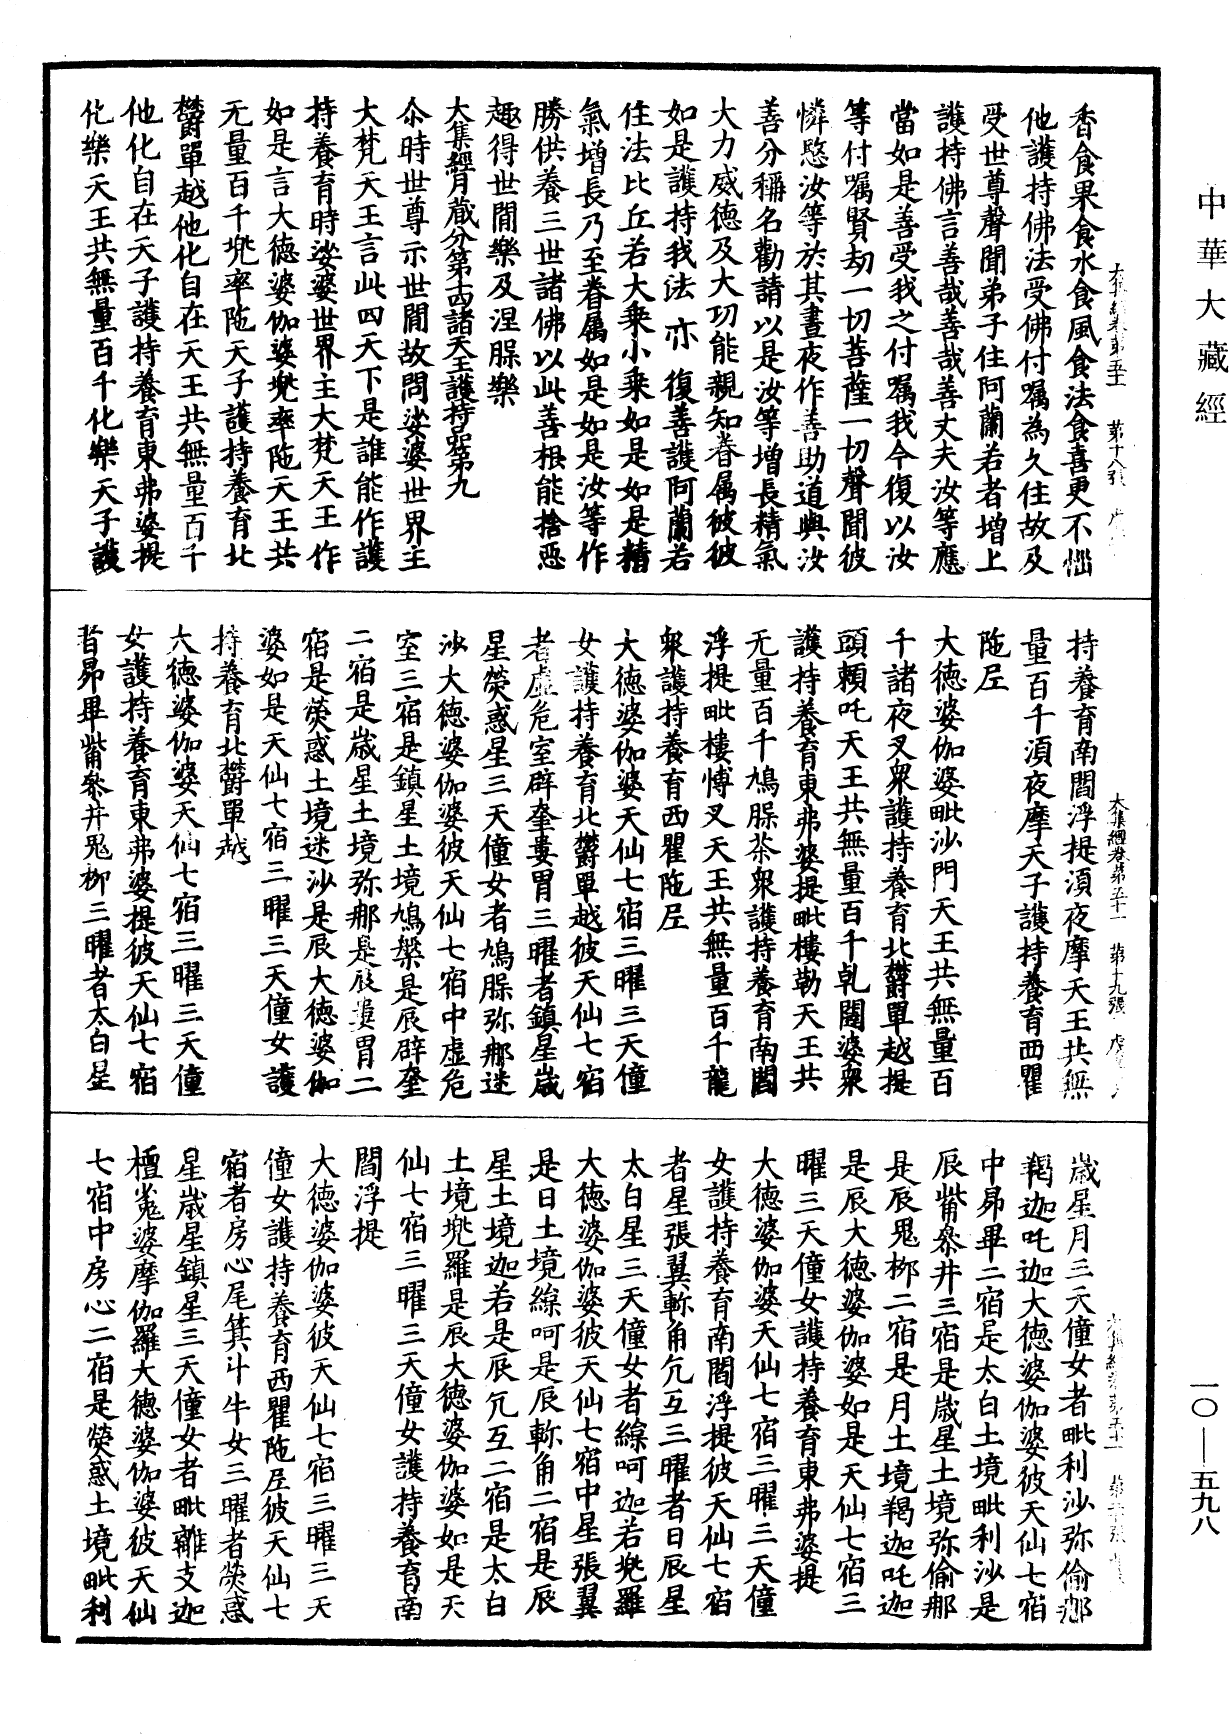 中華大藏經
大集經卷第五十一 第十八張
香食果食水食風食法食喜更不惱
他護持佛法受佛付嘱為久住故及
受世尊聲聞弟子住阿蘭若者增上
護持佛言善哉善哉善丈夫汝等應
當如是善受我之付嘱我今復以汝
等付嘱賢劫一切菩薩一切聲聞彼
憐愍汝等於其晝夜作善助道與汝
善分稱名勸請以是汝等增長精氣
大力威德及大功能親知眷属彼彼
如是護持我法亦復善護阿蘭若
住法比丘若大乗小乗如是如是精
氣增長乃至眷属如是如是汝等作
勝供養三世諸佛以此善根能捨惡
趣得世間樂及涅脲樂
大集經月藏分第十四諸天王護持品第九
尒時世尊示世間故問娑婆世界主
大梵天王言此四天下是誰能作護
持養育時娑婆世界主大梵天王作
如是言大德婆伽婆兜率陁天王共
无量百千兜率陁天子護持養育北
欝單越他化自在天王共無量百千
他化自在天子護持養育東弗婆提
化樂天王共無量百千化樂天子護
大集經卷第五十一 第十九張 虞
持養育南閻浮提湏夜摩天王共無
量百千湏夜摩天子護持養育西瞿
陁尼
大德婆伽婆毗沙門天王共無量百
千諸夜叉衆護持養育北欝單越提
頭賴吒天王共無量百千乹闥婆衆
護持養育東弗婆提毗樓勒天王共
无量百千鳩脲茶衆護持養育南閻
浮提毗樓博叉天王共無量百千龍
衆護持養育西瞿陁尼
大德婆伽婆天仙七宿三曜三天僮
女護持養育北欝單越彼天仙七宿
者虛危室辟奎婁胃三曜者鎮星歲
星熒惑星三天僮女者鳩脲弥那迷
沙大德婆伽婆彼天仙七宿中虛危
室三宿是鎮星土境鳩槃是辰辟奎
二宿是歲星土境弥那是辰婁胃二
宿是熒惑土境迷沙是辰大德婆伽
婆如是天仙七宿三曜三天僮女護
持養育北欝單越
大德婆伽婆天仙七宿三曜三天僮
女護持養育東弗婆提彼天仙七宿
者昴畢觜參井鬼柳三曜者太白星
大集經卷第五十一 第二十張
歲星月三天僮女者毗利沙弥偷那
羯迦吒迦大德婆伽婆彼天仙七宿
中昴畢二宿是太白土境毗利沙是
辰觜參井三宿是歲星土境弥偷那
是辰鬼柳二宿是月土境羯迦吒迦
是辰大德婆伽婆如是天仙七宿三
曜三天僮女護持養育東弗婆提
大德婆伽婆天仙七宿三曜三天僮
女護持養育南閻浮提彼天仙七宿
者星張翼軫角亢互三曜者日辰星
太白星三天僮女者線呵迦若兜羅
大德婆伽婆彼天仙七宿中星張翼
是日土境線呵是辰軫角二宿是辰
星土境迦若是辰亢互二宿是太白
土境兜羅是辰大德婆伽婆如是天
仙七宿三曜三天僮女護持養育南
閻浮提
大德婆伽婆彼天仙七宿三曜三天
僮女護持養育西瞿陁尼彼天仙七
宿者房心尾箕斗牛女三曜者熒惑
星歲星鎮星三天僮女者毗離支迦
檀㝹婆摩伽羅大德婆伽婆彼天仙
七宿中房心二宿是熒惑土境毗利
一〇—五九八